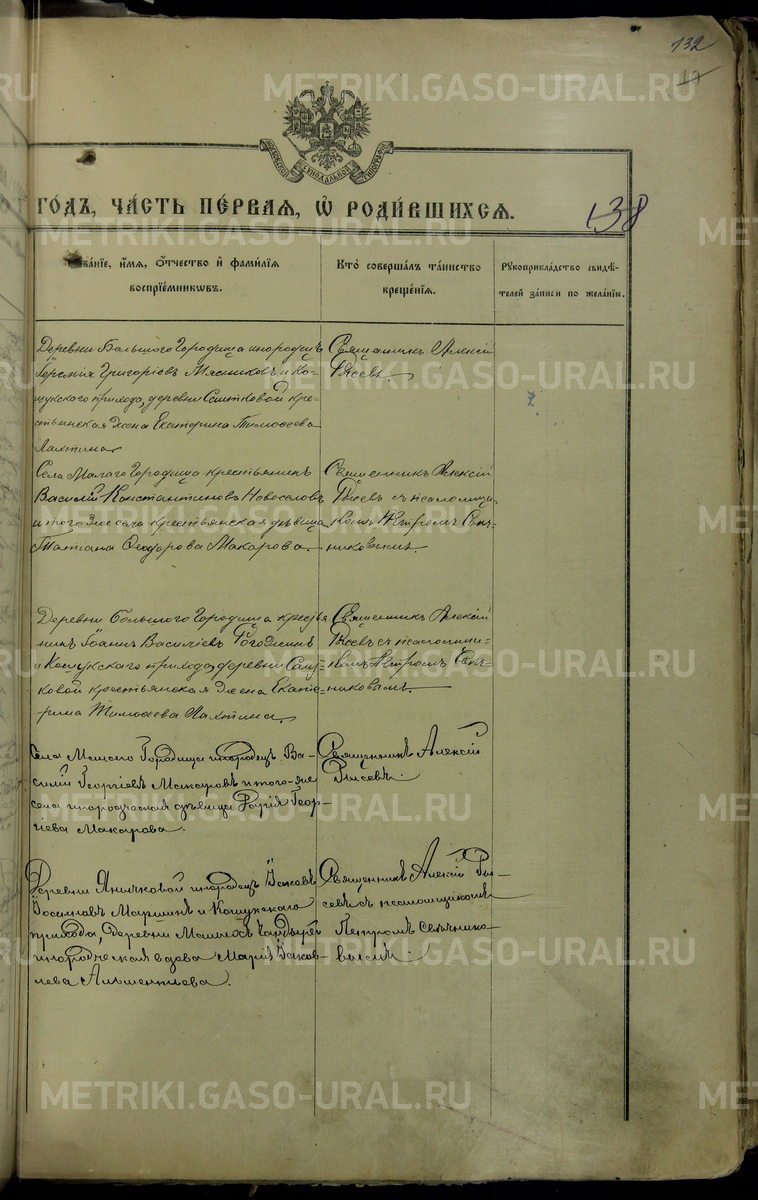 132
METRIKI.GASO-URAL.RU
МОСКОВСКОЙ СѴНОДАЛЬНОЙ ТИПОГРАФІИ
ГОДЪ, ЧА́СТЬ ПЕ́РВАЯ, Ѽ РОДИ́ВШИХСЯ.
138
Зва́ніе, и́мя, о́тчество и҆ фами́лія
воспріе́мникѡвъ.
Кто̀ соверша́лъ та́инство
креще́нія.
Рꙋкоприкла́дство свидѣ́-
телей за́писи по жела́нію.
Деревни Большого Городища инородецъ
Григоріевъ Мясниковъ и Ко-
шукского прихода, деревни кре-
стьянская жена Екатерина Тимоѳеева
Лахтина.
Священникъ Алексій
Гысевъ.
Села Малаго Городища крестьянинъ
Василій Константиновъ Новоселовъ
и того же села крестьянская дѣвица
Татіана Ѳеодорова Макарова.
Священникъ Алексій
Гысевъ съ псаломщи-
комъ Петромъ
никовымъ.
Деревни Большого Городища крестья-
нинъ Іоаннъ Василіевъ
и Кошукского прихода, деревни
ковой крестьянская жена Екате-
рина Тимоѳеева Лахтина.
Священникъ Алексій
Гысевъ съ псаломщи-
комъ Петромъ
никовымъ.
Села Малаго Городища инородецъ Ва-
силій Георгіевъ Макаровъ и того-же
села инородческая дѣвица Марія Геор-
гіева Макарова.
Священникъ Алексій
Гысевъ.
Деревни Яничковой инородецъ Іаковъ
Іосифовъ и Кошукского
прихода, деревни Малыхъ
инородческая вдова Марія Іаков-
лева
Священникъ Алексій Гы-
севъ съ псаломщикомъ
Петромъ
вымъ.